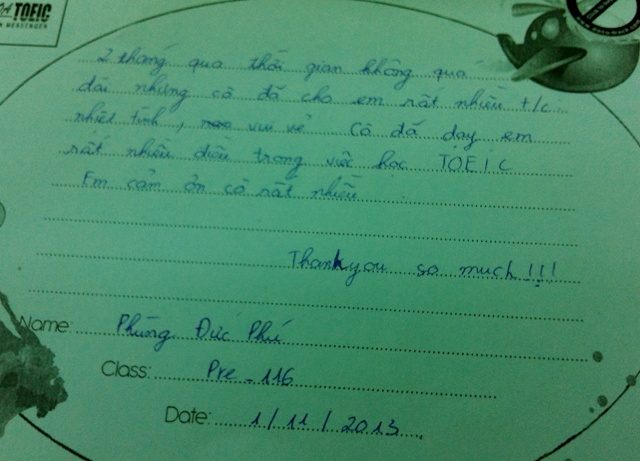 TOEIC
MESSENGER
2 tháng qua thời gian không quá
dài nhưng cô đã cho em rất nhiều t/c
nhiệt tình, vui vẻ. Cô đã dạy em
rất nhiều điều trong việc học TOEIC
Em cảm ơn cô rất nhiều
Thank you so much !!!
Name: Phùng Đức Phú
Class: Pre - 116
Date: 1/11/2013